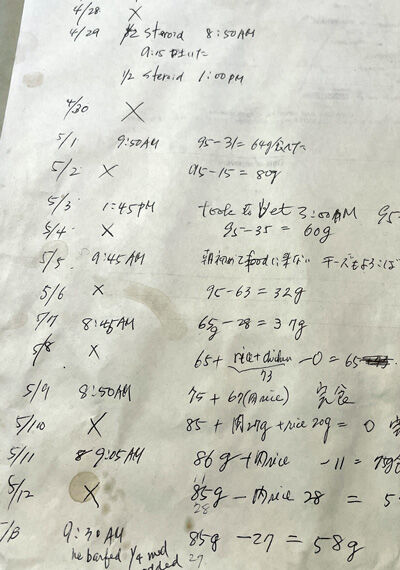 4/28 X
4/29 1/2 steroid 8:50AM
9:15
1/2 steroid 1:00PM
4/30 X
5/1 9:50AM 95-31=64g
5/2 X 95-15=80g
5/3 1:45PM took to Vet 3:00AM 95-
5/4 X 95-35=60g
5/5 9:45AM 朝初めてfoodに来ない チーズも
5/6 X 95-63=32g
7/7 8:45AM 65g-28=37g
5/8 X 65+rice+chicken-0=65
73
5/9 8:50AM 75+67(肉rice) 完食
5/10 X 85+肉27g+rice20g=0
5/11 9:05AM 86g+肉rice -11=75g
5/12 X 85g-肉rice 28=5
28
9:30AM 85g-27=58g
he barfed 1/4 med 27